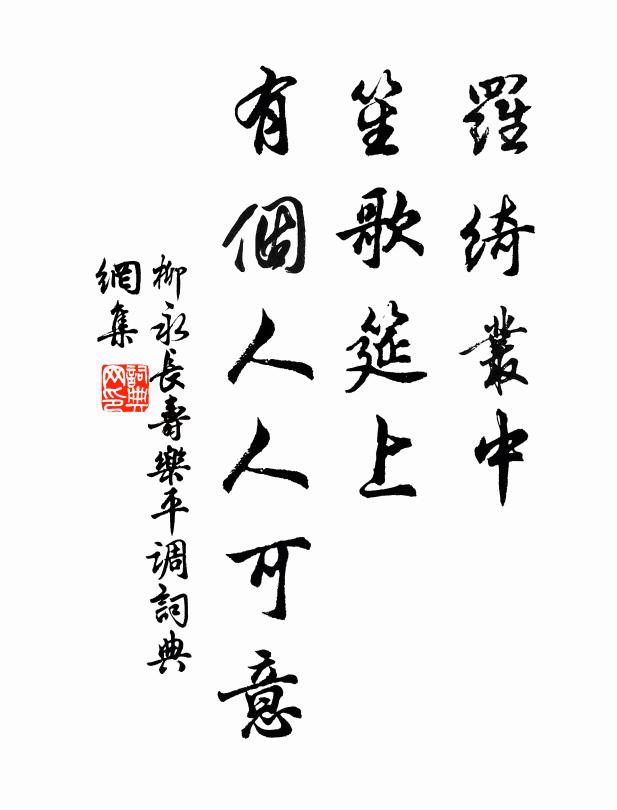 羅綺叢中
笙歌筵上
有個人人可意
柳永長壽樂平调詞典
網集
詞典
网印